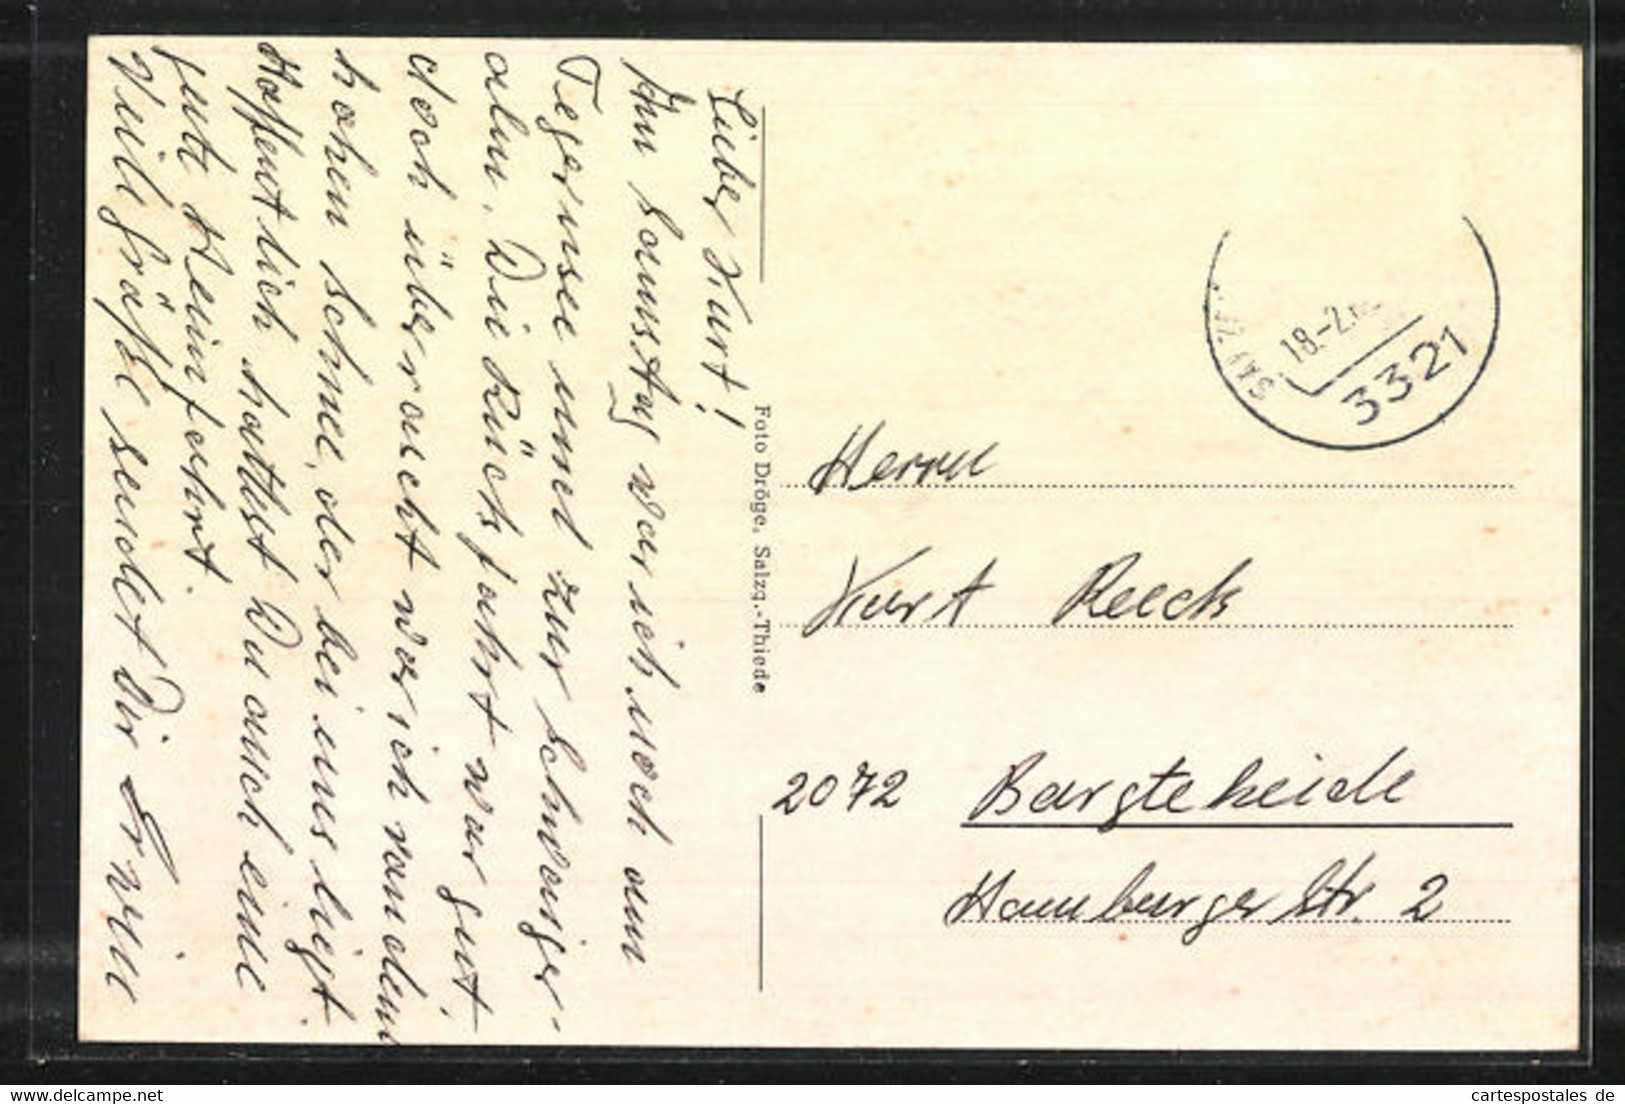 Lieber Kurt!
Am Samstag war ich noch am
Tegernsee und zur Schwaiger-
alm. Die Rückfahrt war gut,
doch überrascht war ich von dem
hohen Schnee, der bei uns liegt.
Hoffentlich hattest Du auch eine
gute Heimfahrt.
Viele Grüße sendet Dir Erwin
Foto Dröge, Salzg.-Thiede
18.-2.
3321
Herrn
Kurt Reeck
2072 Bargteheide
Hamburger Str. 2
www.delcampe.net
cartespostales de